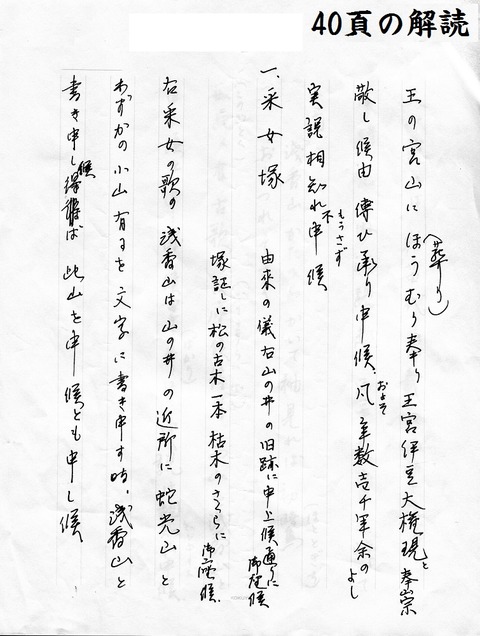 40頁の解読
王の宮山にほうむり(葬り)奉り王宮伊豆大権現と奉崇
敬し候由 傳ひ承り申候、凡(およそ)年数壱千年余のよし
実説相知れ不申(もうさず)候
一、采女塚 由来の儀右山の井の旧跡に申上候通りに御座候
塚証しに松の古木一本 枯木のさくらに御座候
右采女の歌の浅香山は山の井の近所に蛇光山と
わずかの小山有るを文字に書き申す時、浅香山と
書き申し候得ば 此山を申候とも申し候